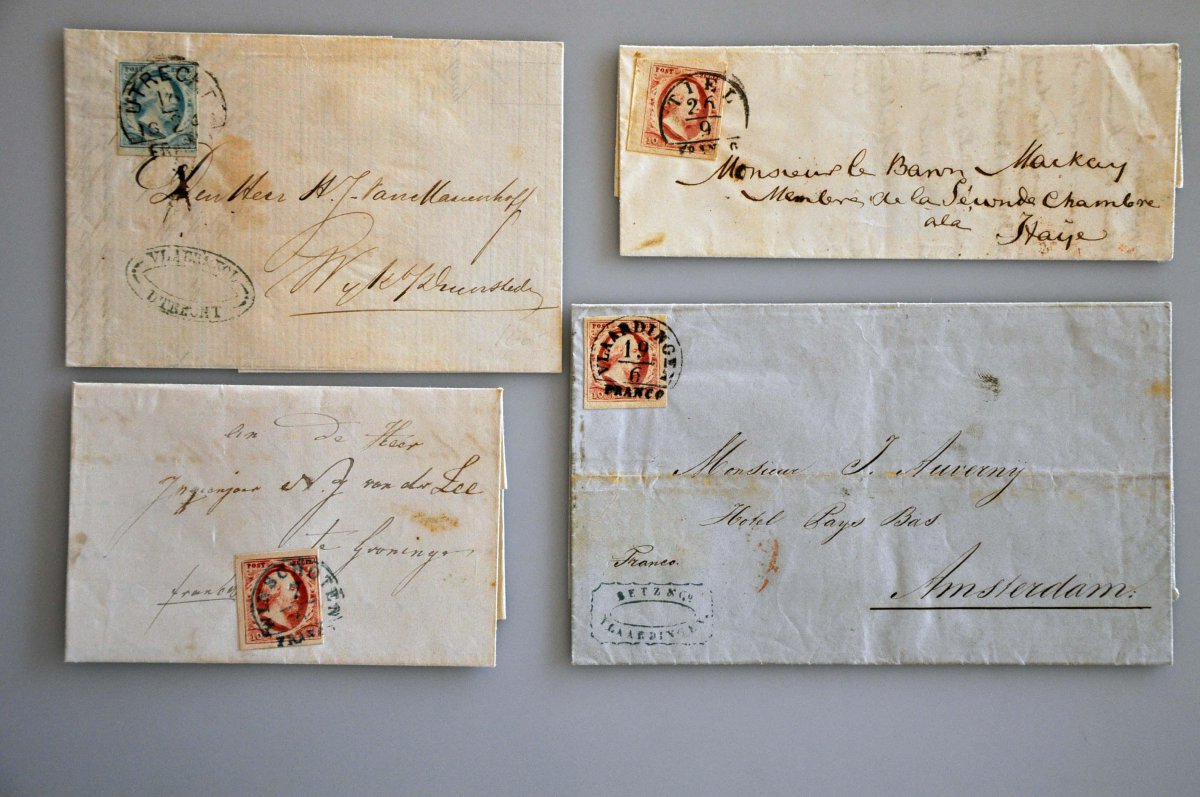 UTRECHT
POST
Den Heer H. J. Van
Wyk
UTRECHT
POST
TIEL
26
9
FRANCO
Monsieur le Baron Mackay
Membre de la Séconde Chambre
a la
Haÿe
an De Heer
N. J. van der Lee
te Groningen
franco
POST
WINSCHOTEN
POST
VLAARDINGEN
19
6
FRANCO
10
Monsieur J. Auverny
Hotel Pays Bas
Franco.
Amsterdam.
BETZ & Co
VLAARDINGEN